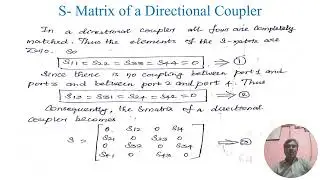 S- Matrix of a Directional Coupler
In a directional coupler all four are completely
matched. Thus the elements of the S-matrix are
zero. So
S11 = S22 = S33 = S44 = 0 ①
Since there is no coupling between port 1 and
port 3 and between port 2 and port 4. Thus
S13 = S31 = S24 = S42 = 0
Consequently, the S matrix of a directional
coupler becomes
0 S12 0 S14
S21 0 S23 0
S = 0 S32 0 S34
S41 0 S43 0